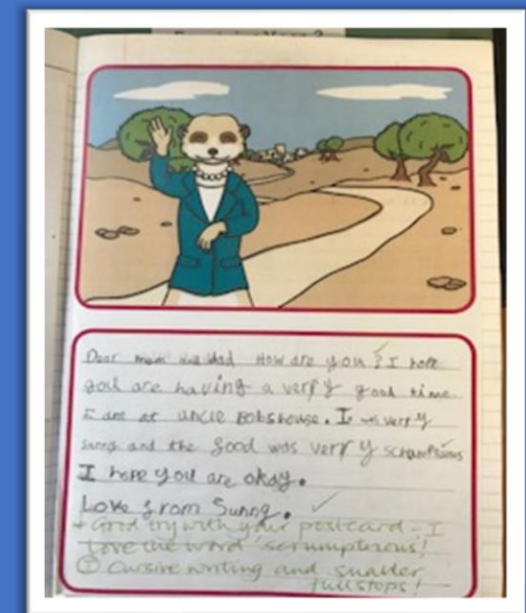 Dear mom and dad How are you? I hope
you are having a verry good time.
I am at uncle Bobshouse. It was verry
sunny and the food was verry scrumptious
I hope you are okay.
Love from Sunny.
+ Good try with your postcard - I
love the word 'scrumptious'!
T Cursive writing and smaller
full stops!